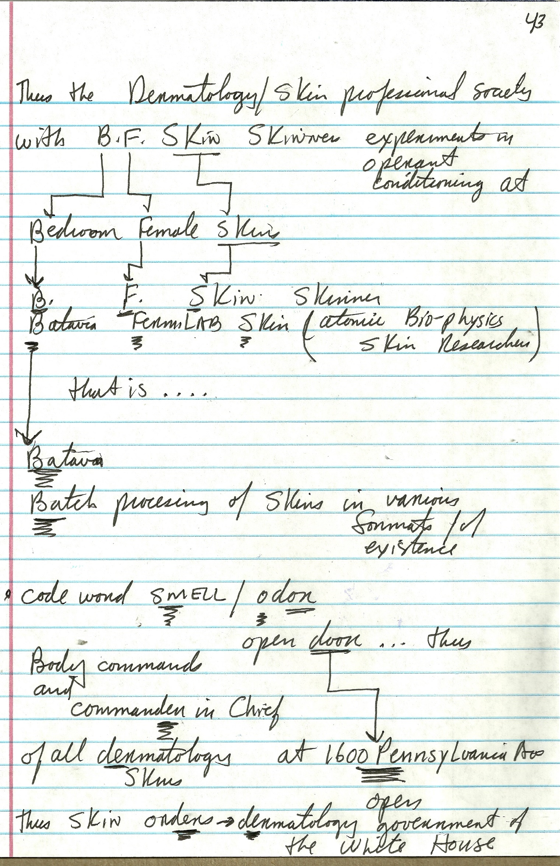 43
Thus the Dermatology/Skin professional society
with B.F. Skin Skinner experiments in
operant
conditioning at
Bedroom Female Skin
B. F. Skin Skinner
Batavia FermiLAB Skin (atomic Bio-physics
Skin Researcher)
that is ....
Batavia
Batch procesing of Skins in various
formats /of
existence
code word SMELL / odor
open door ... thus
Body commands
and
commander in Chief
of all dermatology at 1600 Pennsylvania Ave
Skins
open
thus Skin orders → dermatology government of
the White House